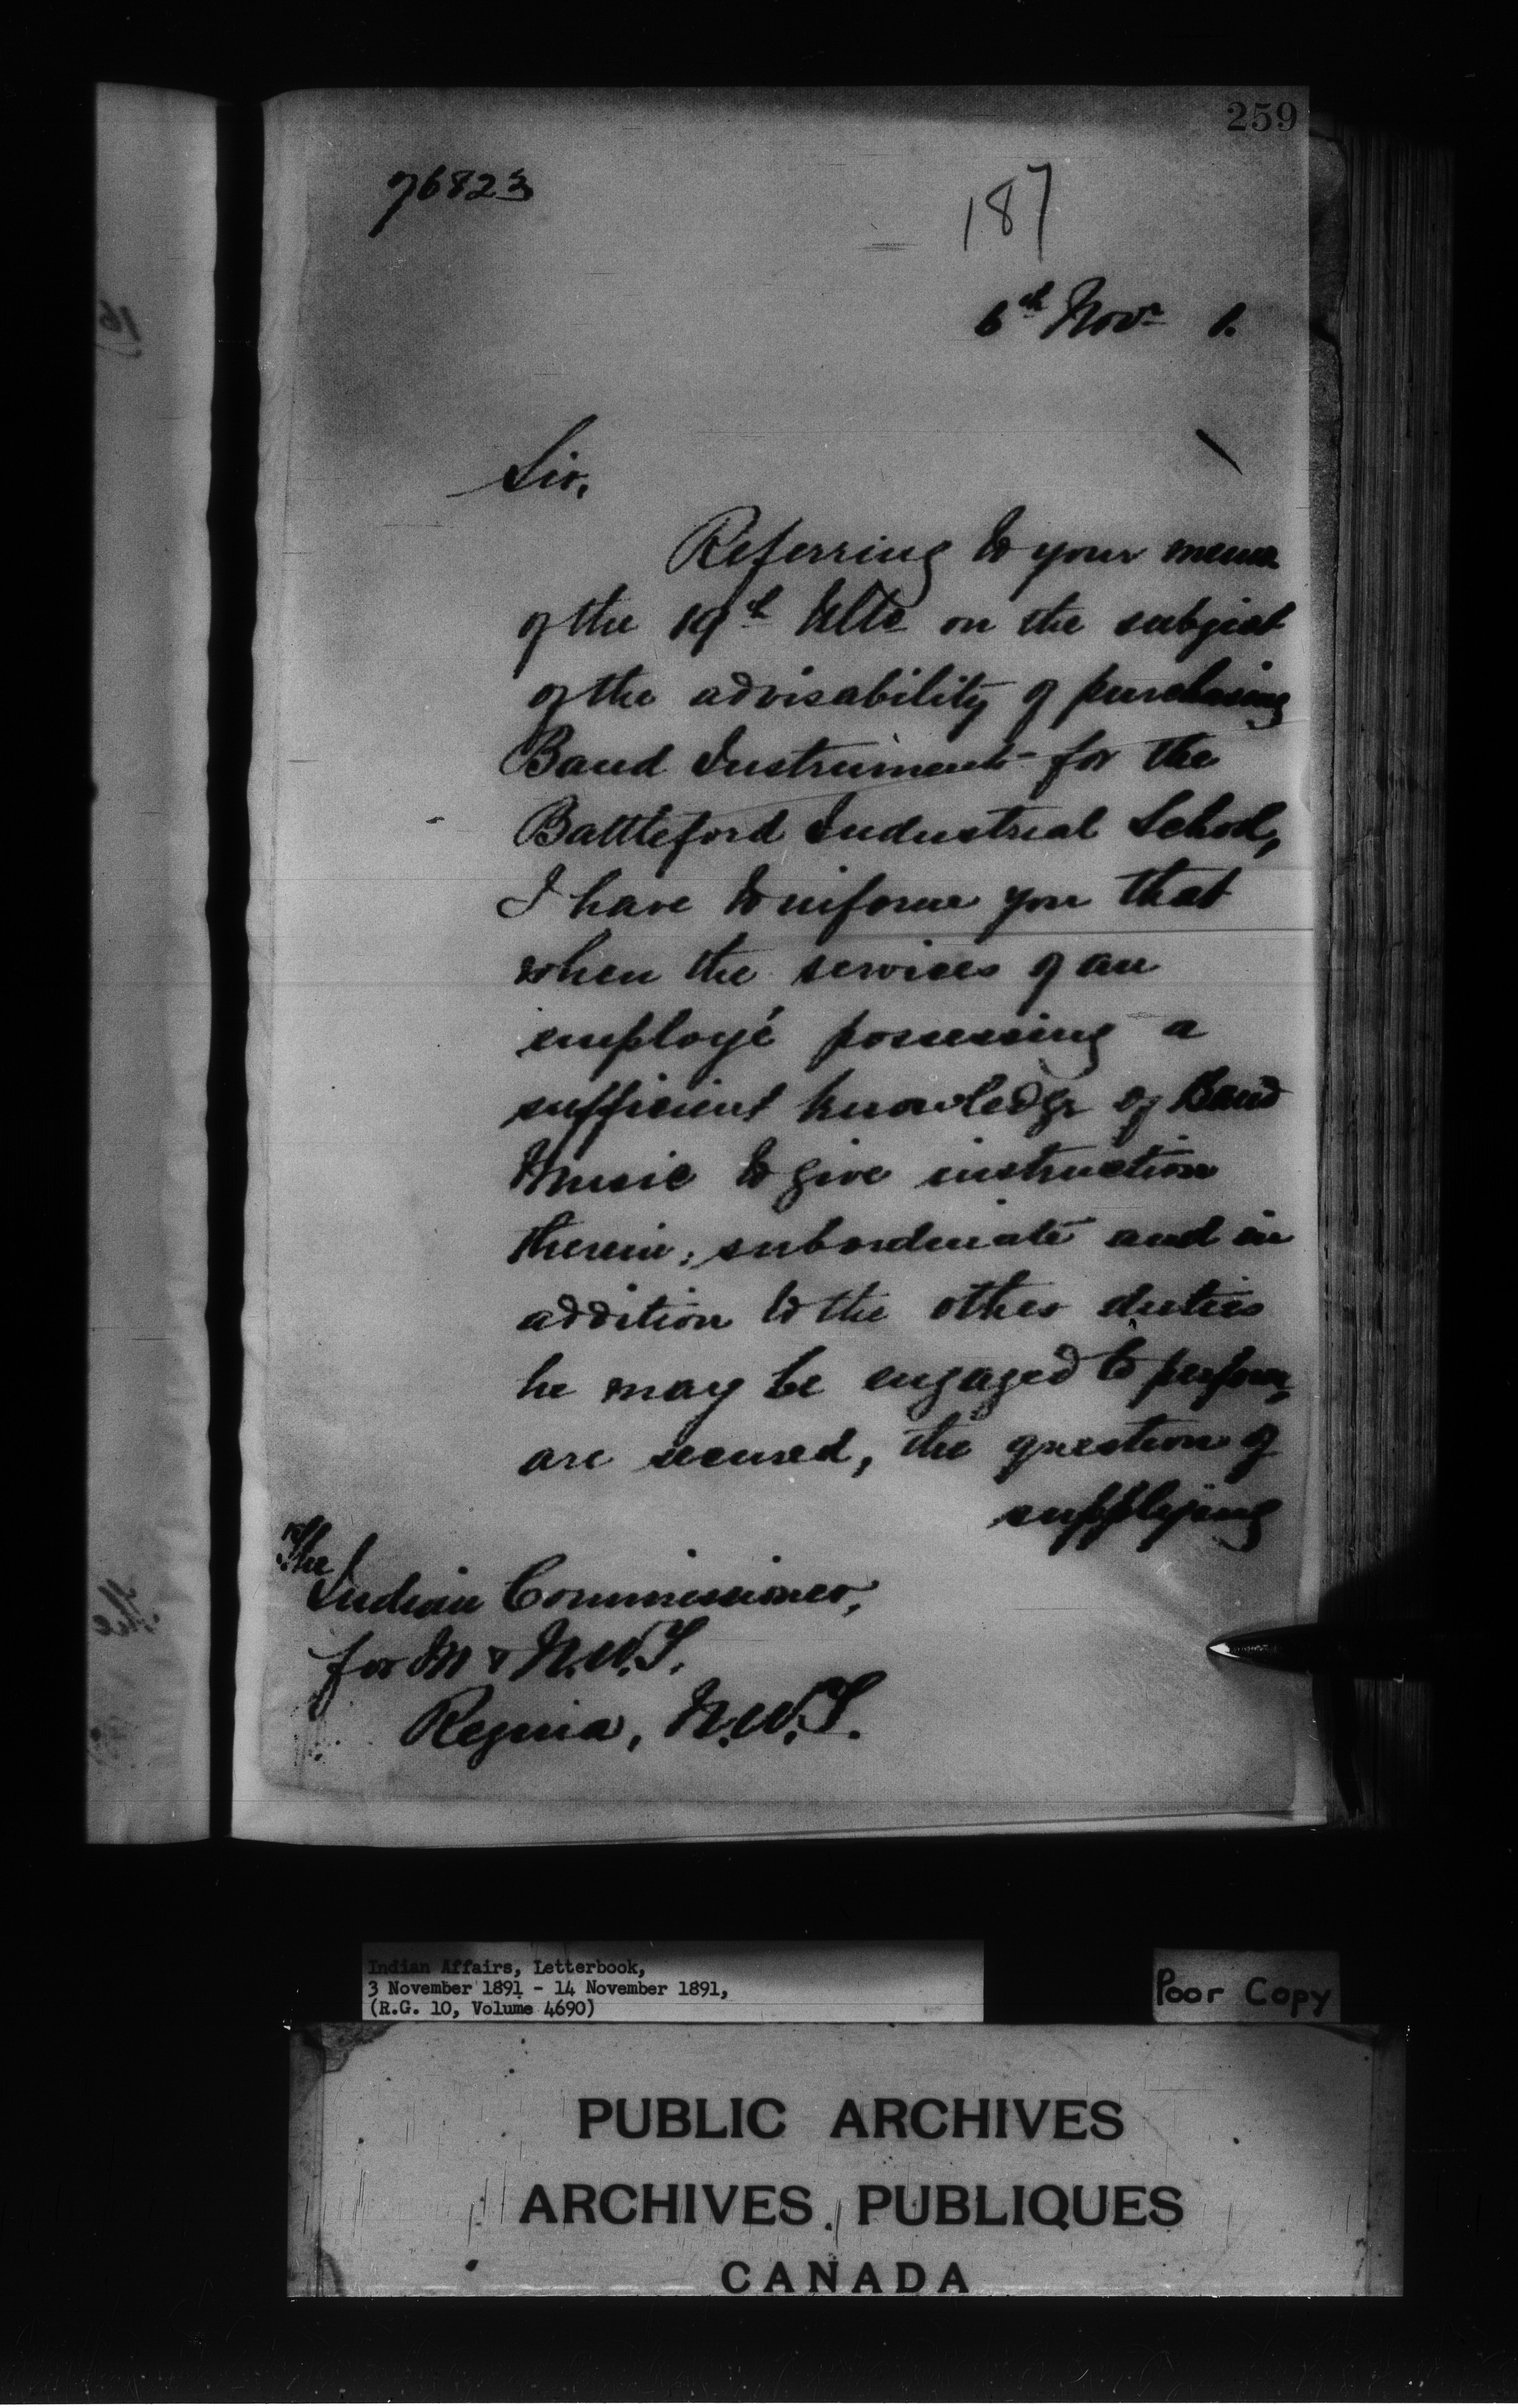 259
76823
187
6th Novr 1.
Sir,
Referring to your memo
of the 19th Ulto on the subject
of the advisability of purchasing
Band Instruments for the
Battleford Industrial School,
I have to inform you that
when the services of an
employé possessing a
sufficient knowledge of Band
Music to give instruction
therein, subordinate and in
addition to the other duties
he may be engaged to perform,
are secured, the question of
supplying
The
Indian Commissioner,
for M & N.W.T.
Regina, N.W.T.
Indian Affairs, Letterbook,
3 November 1891 - 14 November 1891,
(R.G. 10, Volume 4690)
Poor Copy
PUBLIC ARCHIVES
ARCHIVES PUBLIQUES
CANADA